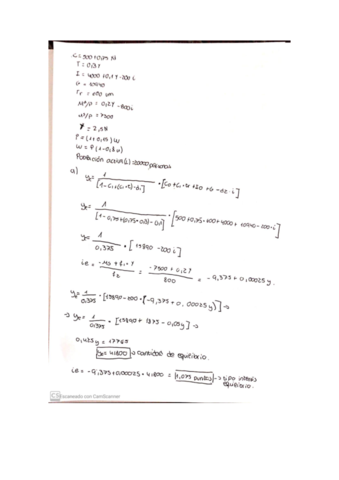 C = 500 + 0,75 Yd
T = 0,3 Y
I = 4000 + 0,1 Y - 200 i
G = 10990
Tr = 400 um
Md/P = 0,2Y - 800i
M/P = 7500
P = (1 + 0,15) W
W = P (1 - 0,8 u)
Población activa (L) = 20000 personas
a)
y = 1 / [1 - C1 + (C1 · t) - d1] · [C0 + C1 · Tr + I0 + G - d2 i]
y = 1 / [1 - 0,75 + (0,75 · 0,3) - 0,1] · [500 + 0,75 · 400 + 4000 + 10990 - 200 · i]
y = 1 / 0,375 · [15890 - 200 i]
ie = = -7500 + 0,2Y / 800 = -9,375 + 0,00025 y.
y = 1 / 0,375 · [15890 - 200 · (-9,375 + 0,00025 y)] →
→ y = 1 / 0,375 · [15890 + 1875 - 0,05y] →
0,425 y = 17765
y = 41800 → cantidad de equilibrio.
ie = -9,375 + 0,00025 · 41800 = 1,075 puntos → tipo interés equilibrio.
CS Escaneado con CamScanner